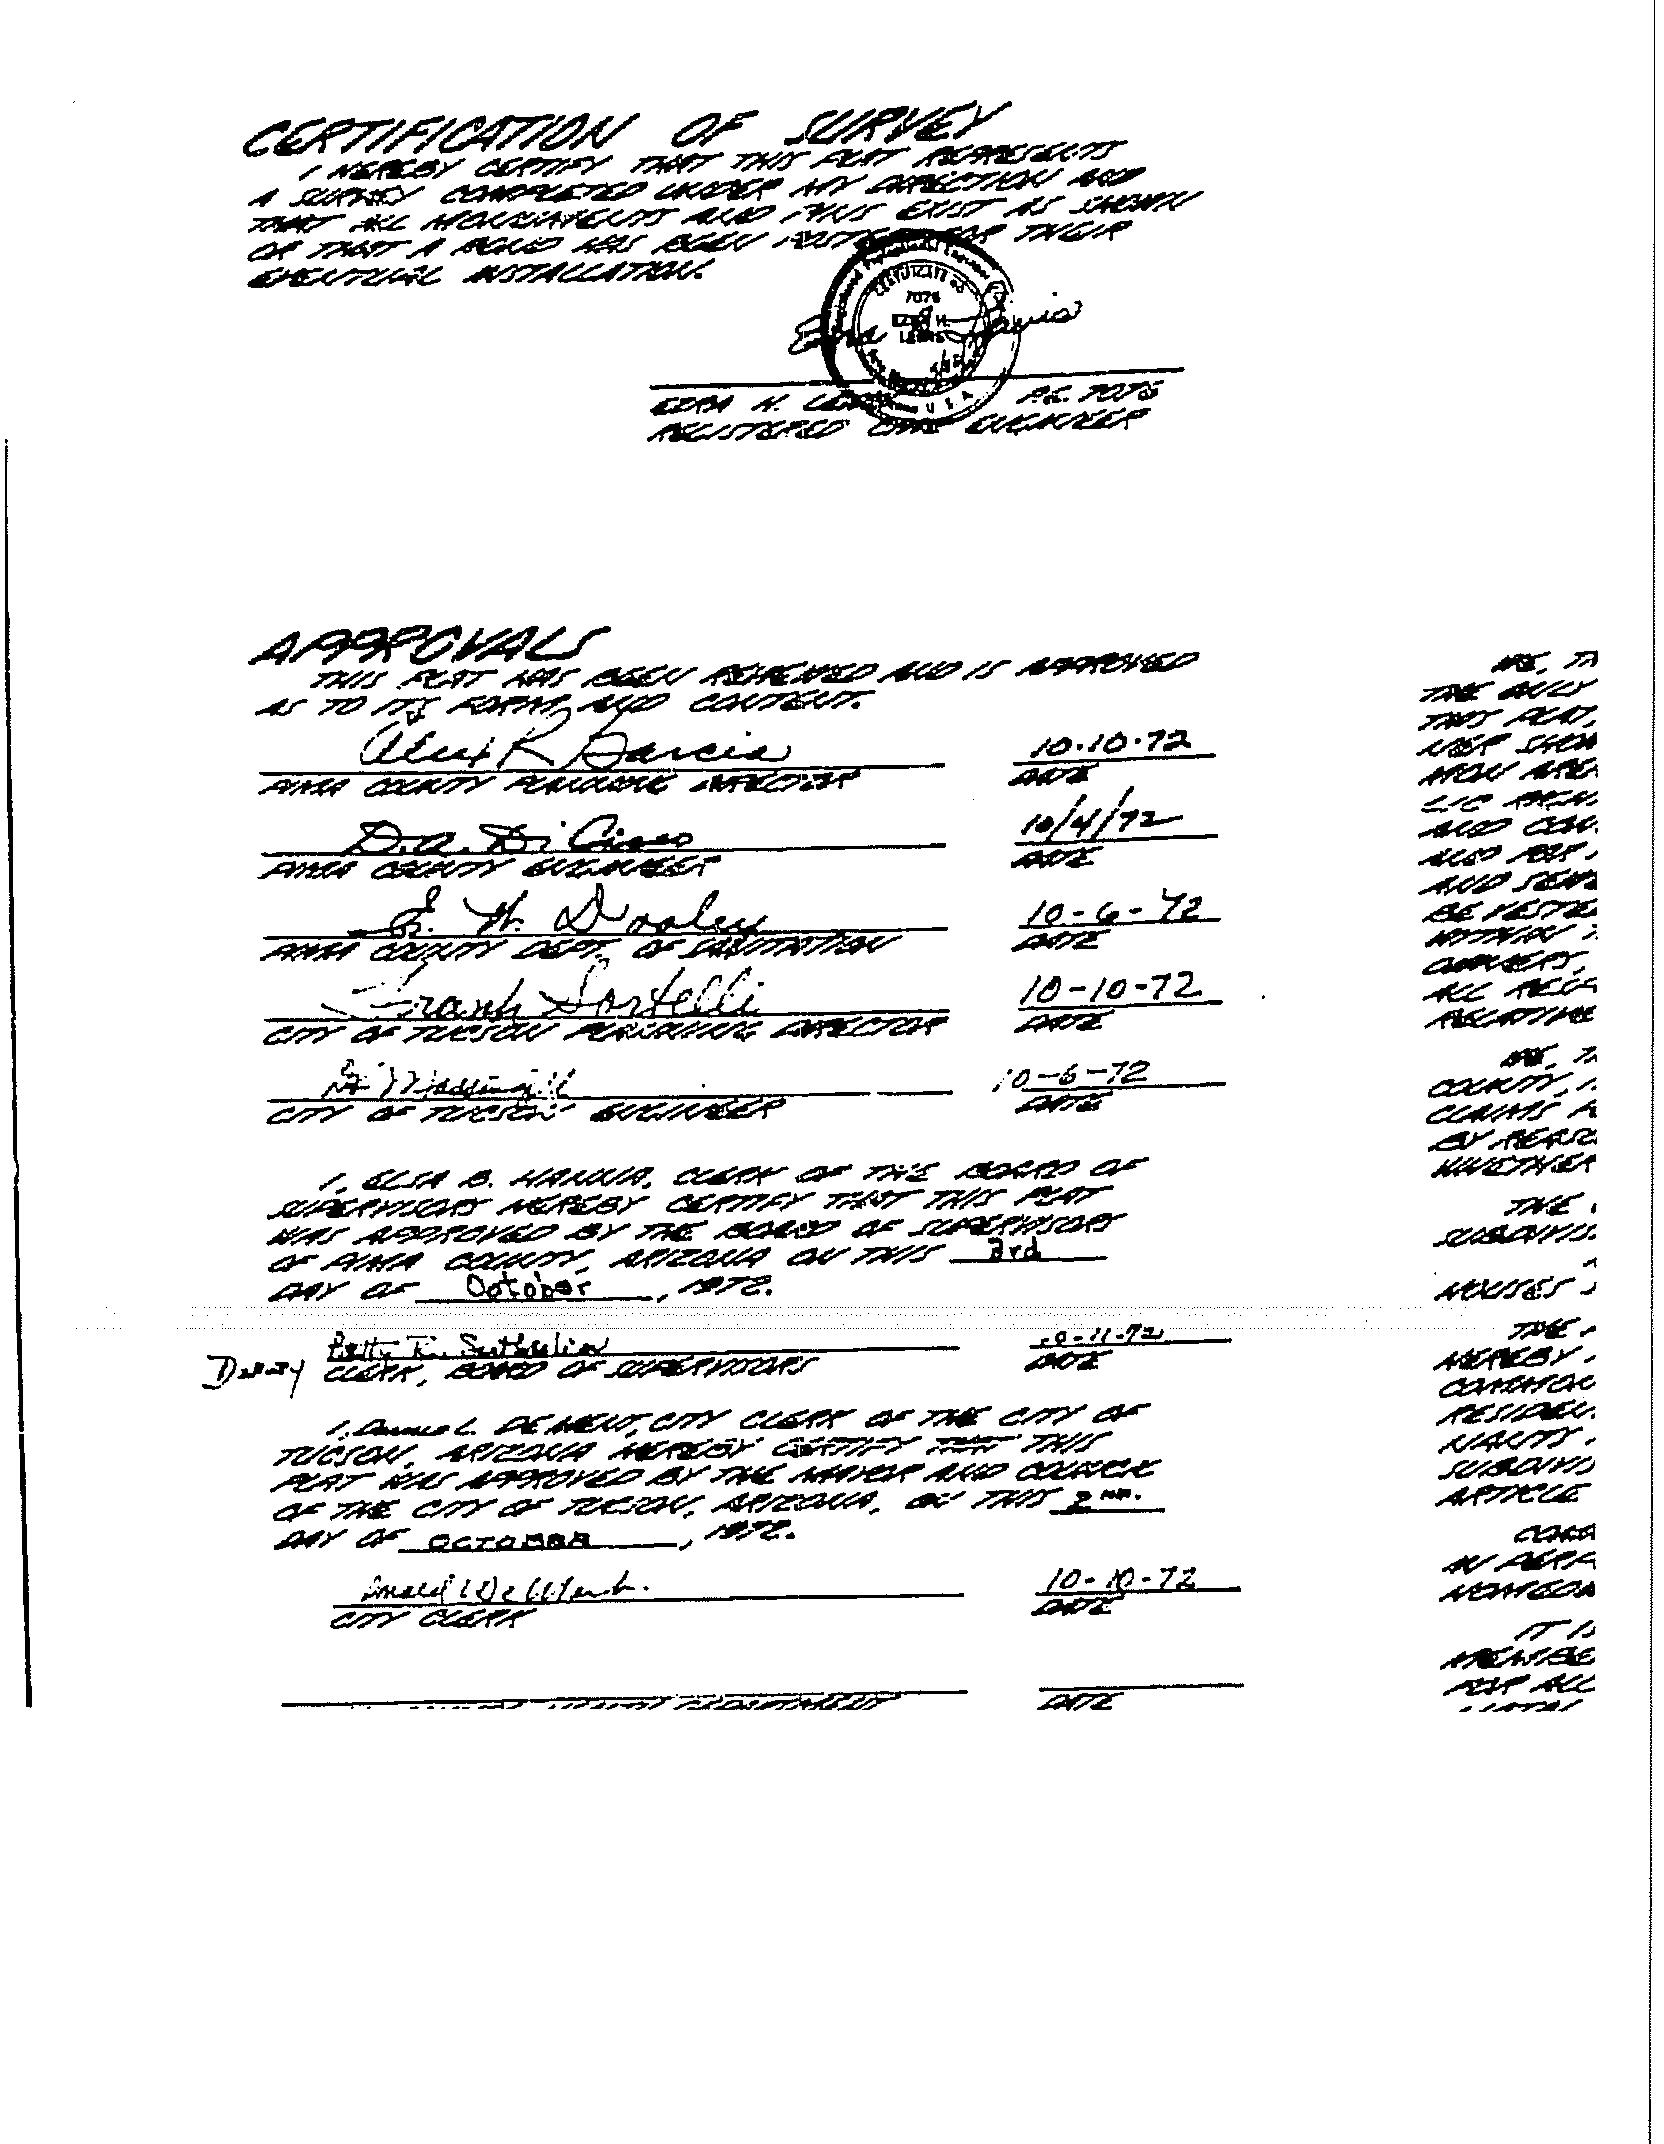 CERTIFICATION OF SURVEY
I HEREBY CERTIFY THAT THIS PLAT REPRESENTS
A SURVEY COMPLETED UNDER MY DIRECTION AND
THAT ALL MONUMENTS AND PINS EXIST AS SHOWN
OR THAT A BOND HAS BEEN POSTED FOR THEIR
EVENTUAL INSTALLATION.
CERTIFICATE NO
7076
EZRA H.
LEWIS
U.S.A.
EZRA H. LEWIS P.E. 7076
REGISTERED CIVIL ENGINEER
APPROVALS
THIS PLAT HAS BEEN REVIEWED AND IS APPROVED
AS TO ITS FORM, AND CONTENT.
Alex R Garcia 10-10-72
PIMA COUNTY PLANNING DIRECTOR DATE
D.A. Di Cicco 10/4/72
PIMA COUNTY ENGINEER DATE
W. Dooley 10-6-72
PIMA COUNTY DEPT. OF SANITATION DATE
Frank Sortelli 10-10-72
CITY OF TUCSON PLANNING DIRECTOR DATE
10-6-72
CITY OF TUCSON ENGINEER DATE
I, ELSA B. HANNA, CLERK OF THE BOARD OF
SUPERVISORS HEREBY CERTIFY THAT THIS PLAT
WAS APPROVED BY THE BOARD OF SUPERVISORS
OF PIMA COUNTY, ARIZONA ON THIS 3rd
DAY OF October, 1972.
Betty 0-11-72
Deputy CLERK, BOARD OF SUPERVISORS DATE
I, L. DE MENT, CITY CLERK OF THE CITY OF
TUCSON, ARIZONA HEREBY CERTIFY THAT THIS
PLAT WAS APPROVED BY THE MAYOR AND COUNCIL
OF THE CITY OF TUCSON, ARIZONA, ON THIS 2ND.
DAY OF OCTOBER, 1972.
10-10-72
CITY CLERK DATE
DEPARTMENT DATE
WE, TH
THE ONLY
THIS PLAT,
AND CON
AND
BE VESTED
WITHIN
OWNERS,
RELATIVE
WE, TH
COUNTY,
CLAIMS
BY REASO
WHETHER
THE
SUBDIVIS
HOUSES
THE
HEREBY
COMMON
RESIDEN
SUBDIVIS
ARTICLE
IT IS
FOR ALL